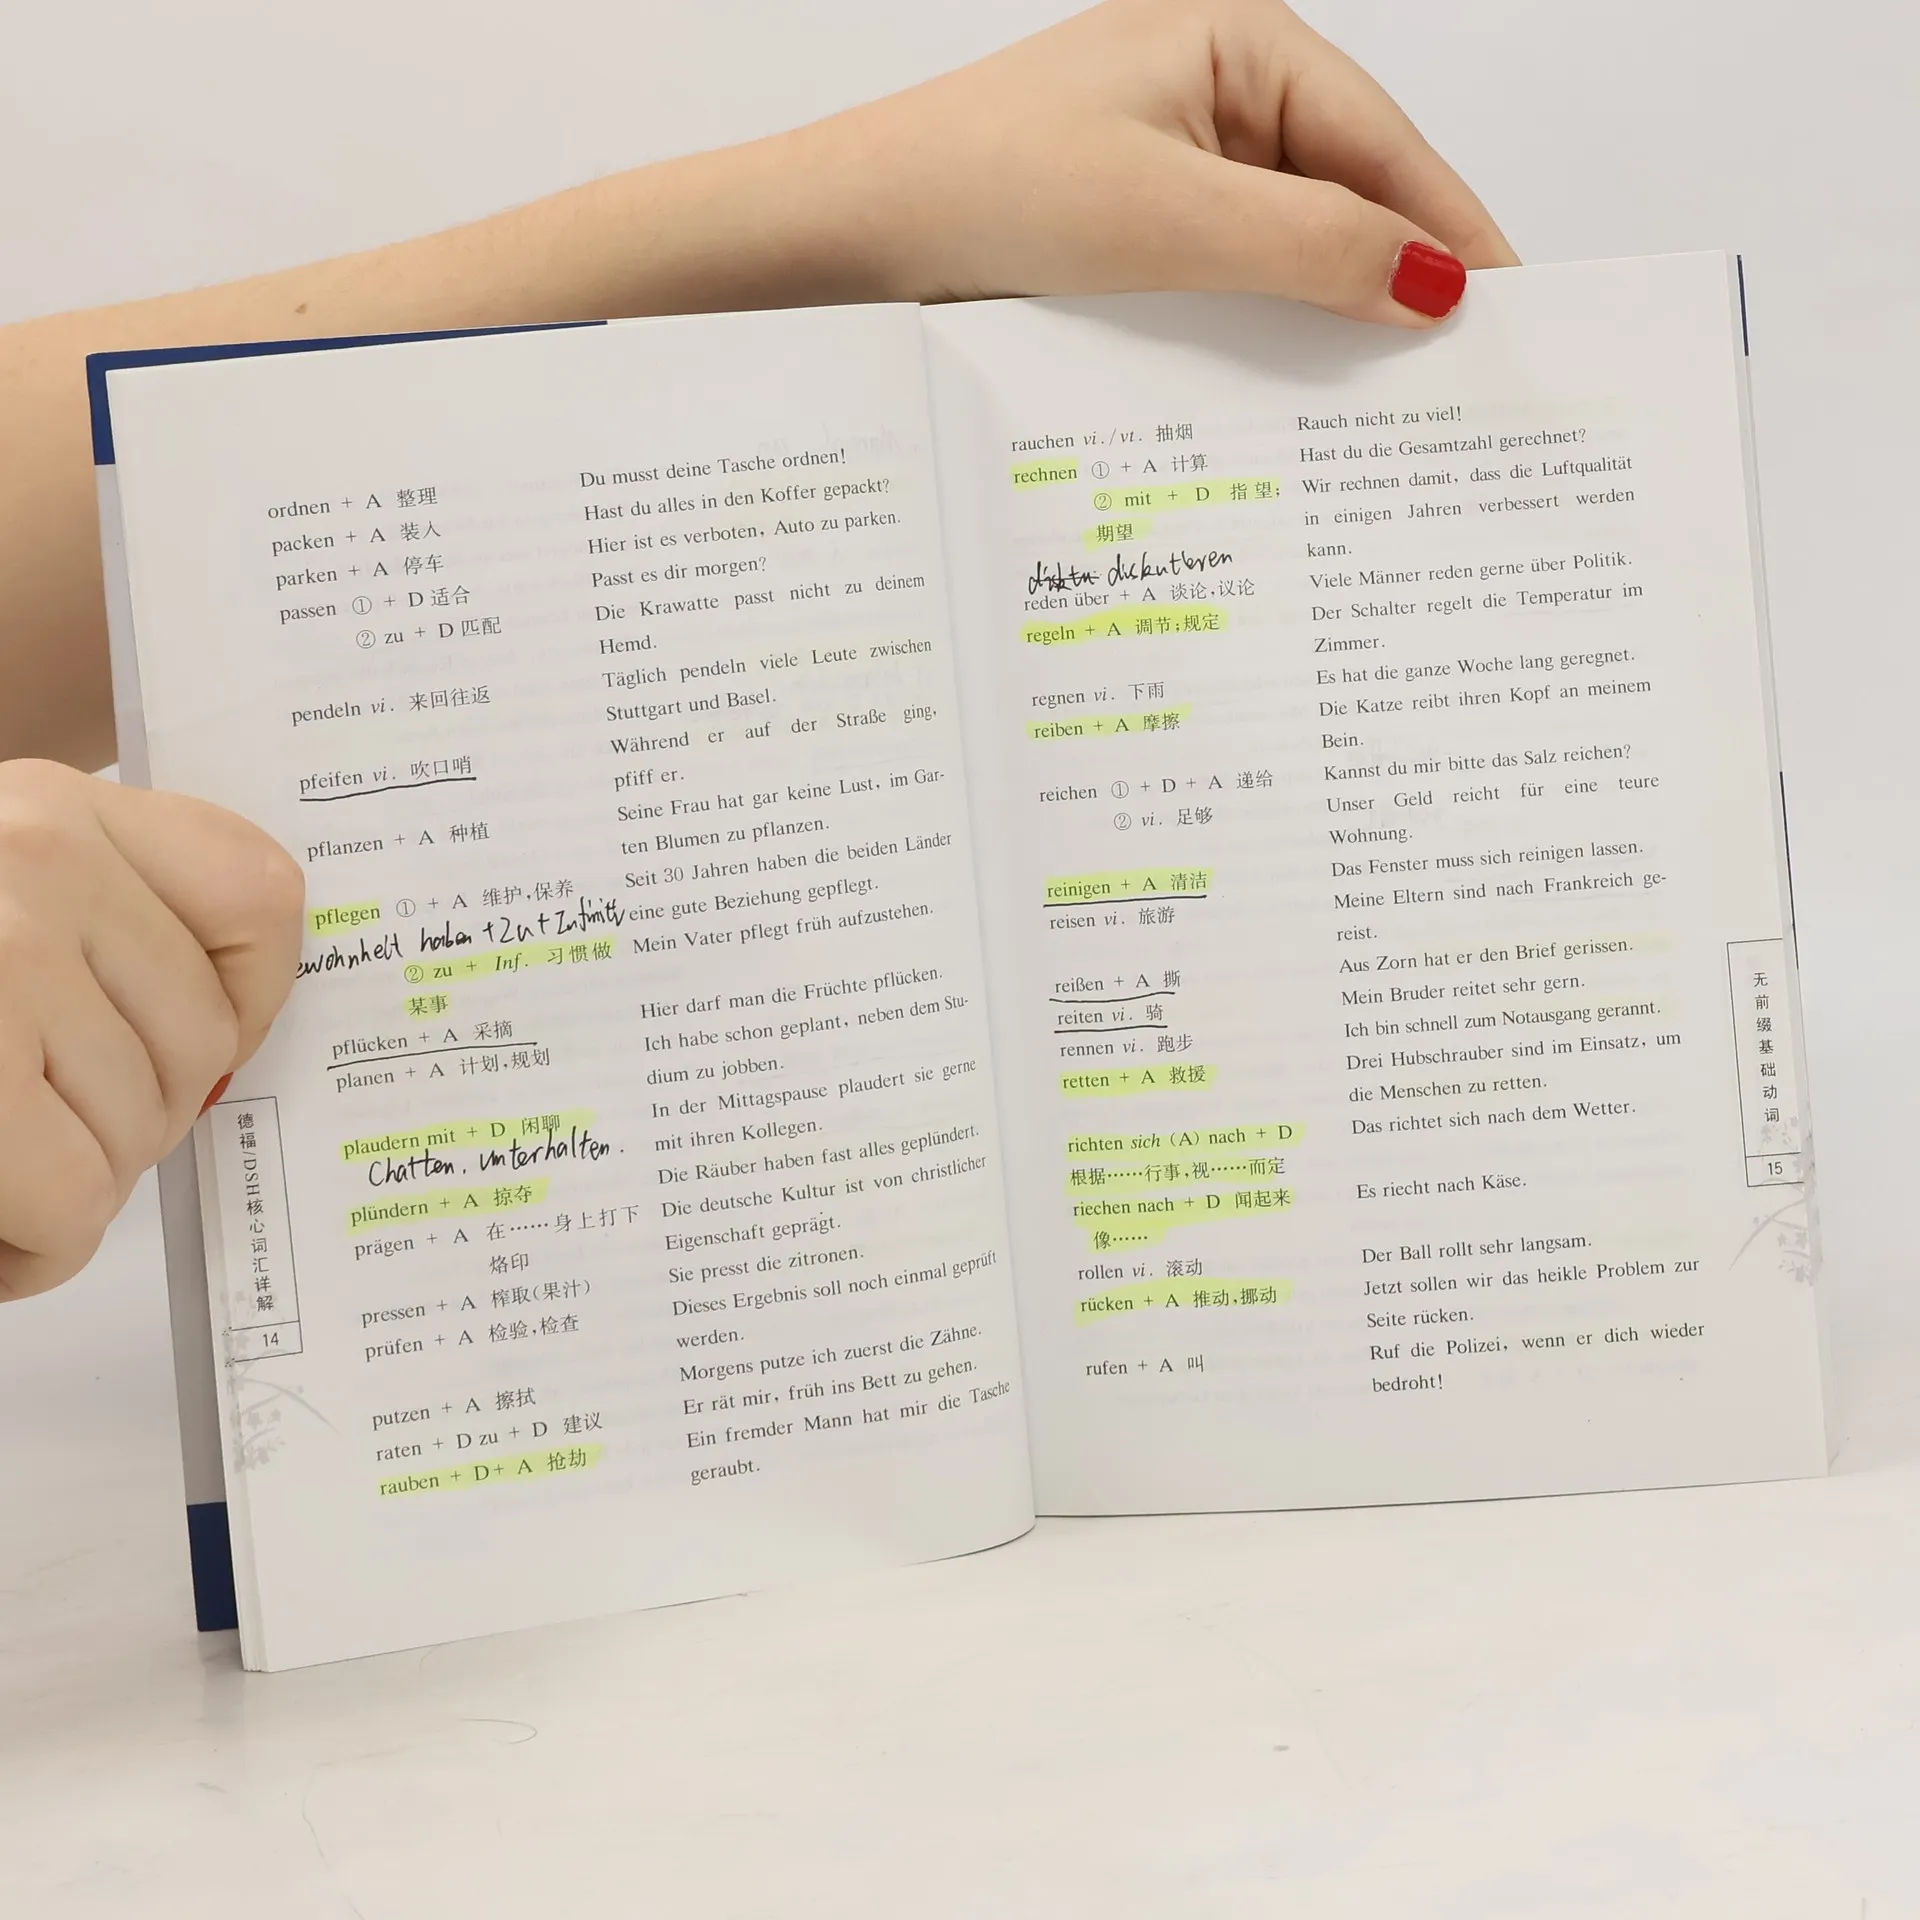 ordnen + A 整理
packen + A 装入
parken + A 停车
passen ① + D 适合
② zu + D 匹配
pendeln vi. 来回往返
pfeifen vi. 吹口哨
pflanzen + A 种植
pflegen ① + A 维护,保养
ewohnheit haben + zu + Infinitiv
② zu + Inf. 习惯做
某事
pflücken + A 采摘
planen + A 计划,规划
plaudern mit + D 闲聊
Chatten, unterhalten.
plündern + A 掠夺
prägen + A 在……身上打下
烙印
pressen + A 榨取(果汁)
prüfen + A 检验,检查
putzen + A 擦拭
raten + D zu + D 建议
rauben + D+ A 抢劫
Du musst deine Tasche ordnen!
Hast du alles in den Koffer gepackt?
Hier ist es verboten, Auto zu parken.
Passt es dir morgen?
Die Krawatte passt nicht zu deinem
Hemd.
Täglich pendeln viele Leute zwischen
Stuttgart und Basel.
Während er auf der Straße ging,
pfiff er.
Seine Frau hat gar keine Lust, im Gar-
ten Blumen zu pflanzen.
Seit 30 Jahren haben die beiden Länder
eine gute Beziehung gepflegt.
Mein Vater pflegt früh aufzustehen.
Hier darf man die Früchte pflücken.
Ich habe schon geplant, neben dem Stu-
dium zu jobben.
In der Mittagspause plaudert sie gerne
mit ihren Kollegen.
Die Räuber haben fast alles geplündert.
Die deutsche Kultur ist von christlicher
Eigenschaft geprägt.
Sie presst die zitronen.
Dieses Ergebnis soll noch einmal geprüft
werden.
Morgens putze ich zuerst die Zähne.
Er rät mir, früh ins Bett zu gehen.
Ein fremder Mann hat mir die Tasche
geraubt.
德福/DSH核心词汇详解
14
rauchen vi./vt. 抽烟
rechnen ① + A 计算
② mit + D 指望;
期望
diskutieren
reden über + A 谈论,议论
regeln + A 调节;规定
regnen vi. 下雨
reiben + A 摩擦
reichen ① + D + A 递给
② vi. 足够
reinigen + A 清洁
reisen vi. 旅游
reißen + A 撕
reiten vi. 骑
rennen vi. 跑步
retten + A 救援
richten sich (A) nach + D
根据……行事,视……而定
riechen nach + D 闻起来
像……
rollen vi. 滚动
rücken + A 推动,挪动
rufen + A 叫
Rauch nicht zu viel!
Hast du die Gesamtzahl gerechnet?
Wir rechnen damit, dass die Luftqualität
in einigen Jahren verbessert werden
kann.
Viele Männer reden gerne über Politik.
Der Schalter regelt die Temperatur im
Zimmer.
Es hat die ganze Woche lang geregnet.
Die Katze reibt ihren Kopf an meinem
Bein.
Kannst du mir bitte das Salz reichen?
Unser Geld reicht für eine teure
Wohnung.
Das Fenster muss sich reinigen lassen.
Meine Eltern sind nach Frankreich ge-
reist.
Aus Zorn hat er den Brief gerissen.
Mein Bruder reitet sehr gern.
Ich bin schnell zum Notausgang gerannt.
Drei Hubschrauber sind im Einsatz, um
die Menschen zu retten.
Das richtet sich nach dem Wetter.
Es riecht nach Käse.
Der Ball rollt sehr langsam.
Jetzt sollen wir das heikle Problem zur
Seite rücken.
Ruf die Polizei, wenn er dich wieder
bedroht!
无前缀基础动词
15